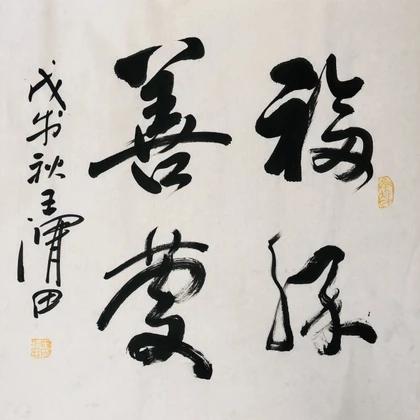 福缘
善慶
戊戌秋王渭田